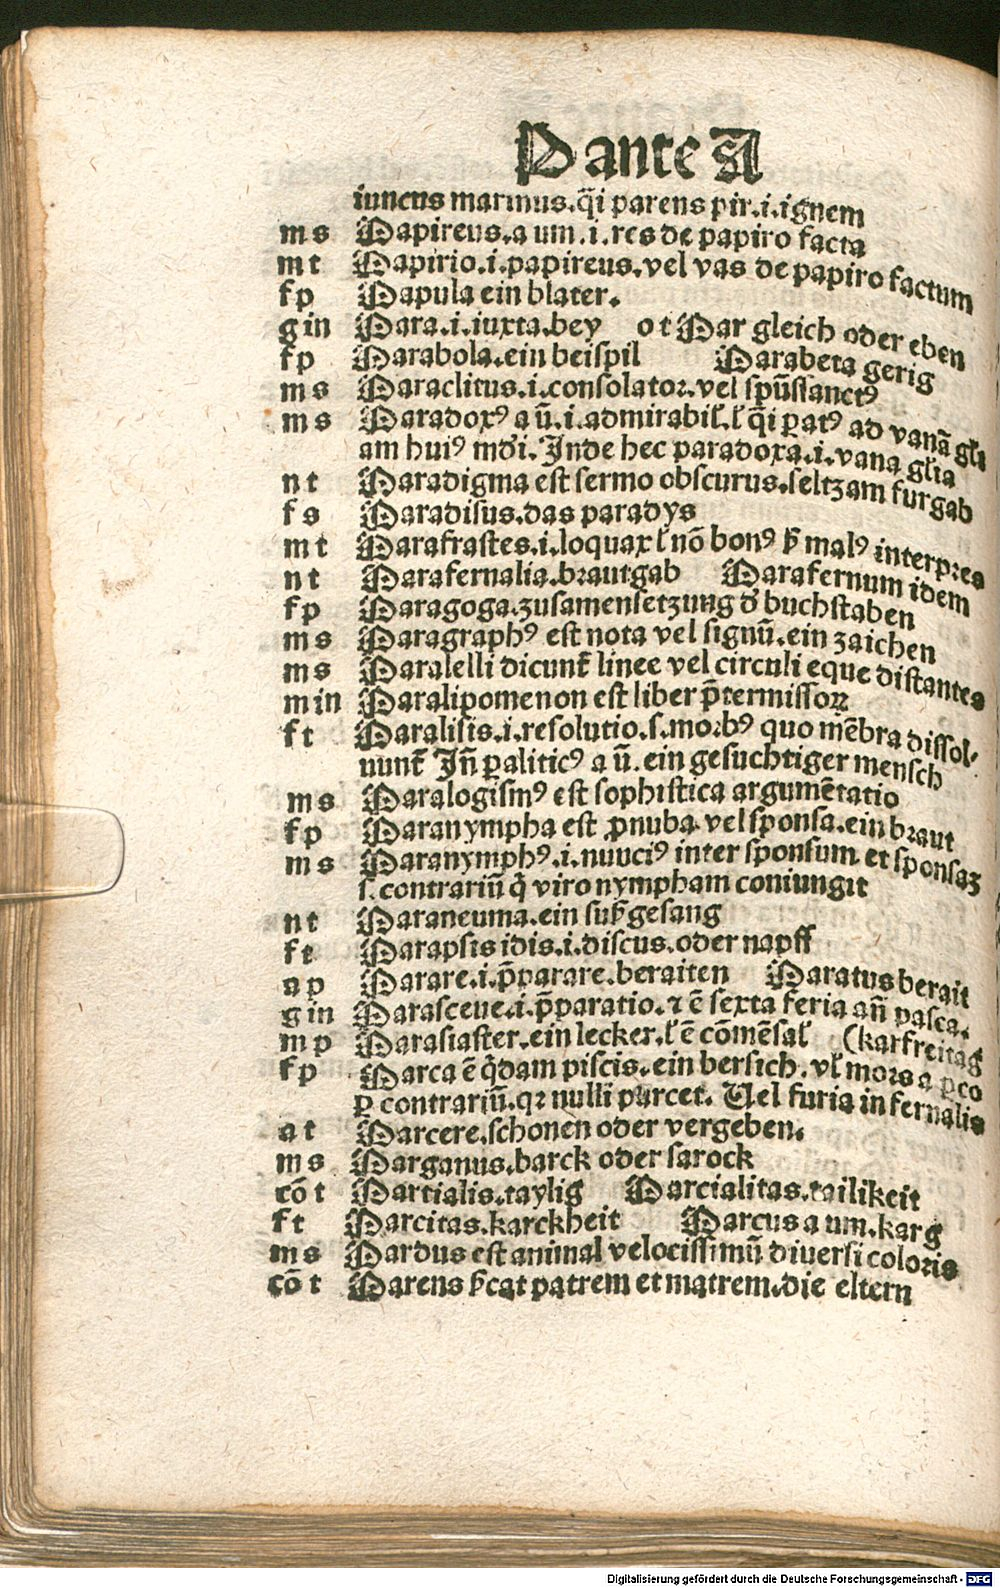 Pante A
iuncus marinus.q̄si parens pir.i.ignem
m s Papireus.a um.i.res de papiro facta
m t Papirio.i.papireus.vel vas de papiro factum
f p Papula ein blater.
g in Para.i.iuxta.bey o t Par gleich oder eben
f p Parabola.ein beispil Parabeta gerig
m s Paraclitus.i.consolator.vel spūssanctꝰ
m s Paradoxꝰ a ū.i.admirabiƚ.ƚ q̄si ꝑatꝰ ad vanā gƚi
am huiꝰ mōi.Inde hec paradoxa.i.vana gƚia
n t Paradigma est sermo obscurus.seltzam furgab
f s Paradisus.das paradys
m t Parafrastes.i.loquax ƚ nō bonꝰ s malꝰ interpres
n t Parafernalia.brautgab Parafernum idem
f p Paragoga.zusamensetzung đ buchstaben
m s Paragraphꝰ est nota vel signū.ein zaichen
m s Paralelli dicunt̄ linee vel circuli eque distantes
m in Paralipomenon est liber p̄termissoꝝ
f t Paralisis.i.resolutio.s.morbꝰ quo mēbra dissol-
uunt̄ Iñ ꝑaliticꝰ a ū.ein gesuchtiger mensch
m s Paralogismꝰ est sophistica argumētatio
f p Paranympha est ꝓnuba.vel sponsa.ein braut
m s Paranymphꝰ.i.nuuciꝰ inter sponsum et sponsaꝫ
s.contrariū q̇ viro nympham coniungit
n t Paraneuma.ein suß gesang
f t Parapsis idis.i.discus.oder napff
a p Parare.i.p̄parare.beraiten Paratus berait
g in Parasceue.i.p̄paratio.⁊ ē sexta feria añ pasca.
m p Parasiaster.ein lecker.ƚ ē cōmēsaƚ (karfreitag
f p Parca ē q̇dam piscis.ein bersich.vƚ mors a ꝑco
ꝑ contrariū.qꝛ nulli parcet. Uel furia infernalis
a t Parcere.schonen oder vergeben.
m s Parganus.barck oder sarock
cō t Partialis.taylig Parcialitas.tailikeit
f t Parcitas.karckheit Parcus a um.karg
m s Pardus est animal velocissimū diuersi coloris
cō t Parens s̄cat patrem et matrem.die eltern
Digitalisierung gefördert durch die Deutsche Forschungsgemeinschaft - DFG